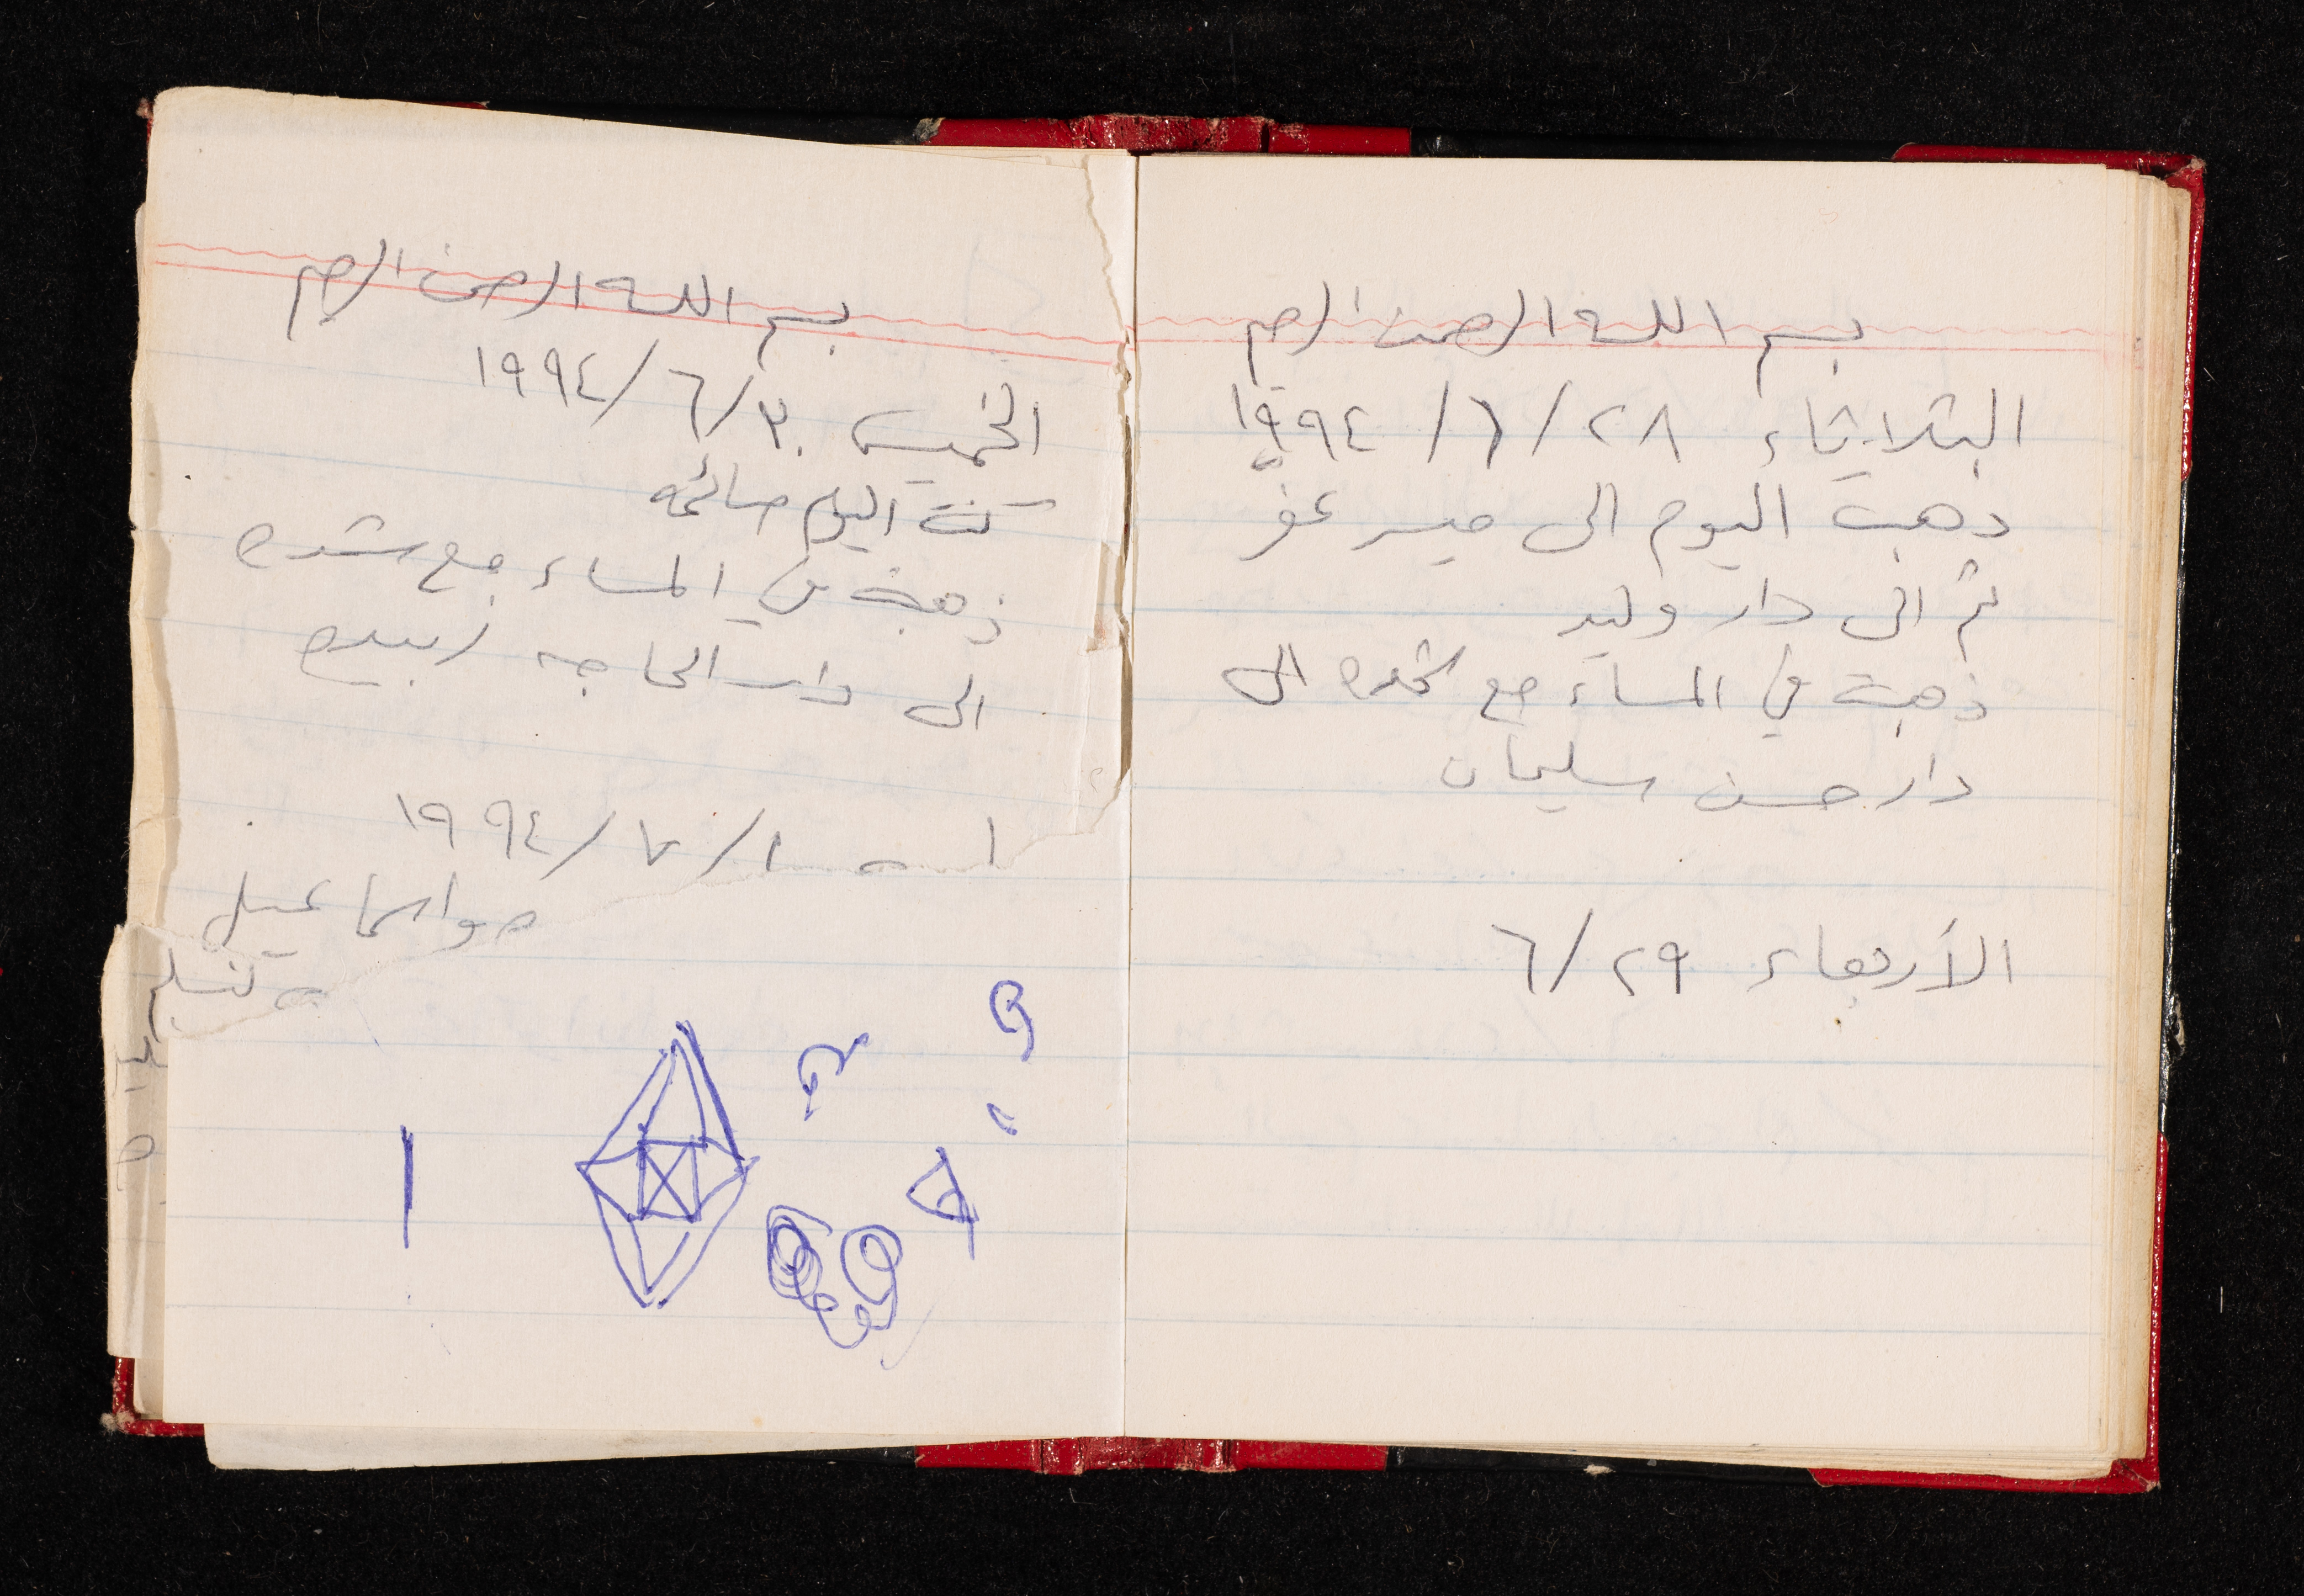 بسم الله الرحمن الرحيم
الثلاثاء ٢٨ / ٦ / ١٩٩٤
ذهبت اليوم الى ميس عفو
ثم الى دار وليد
ذهبت في المساء مع الى
دار حسن سليمان
الأربعاء ٢٩ / ٦
بسم الله الرحمن الرحيم
الخميس ٣٠ / ٦ / ١٩٩٤
كنت اليوم صائمه
ذهبت في المساء مع
الى دار الحاجه زبيده
١ / ٧ / ١٩٩٤
واسماعيل